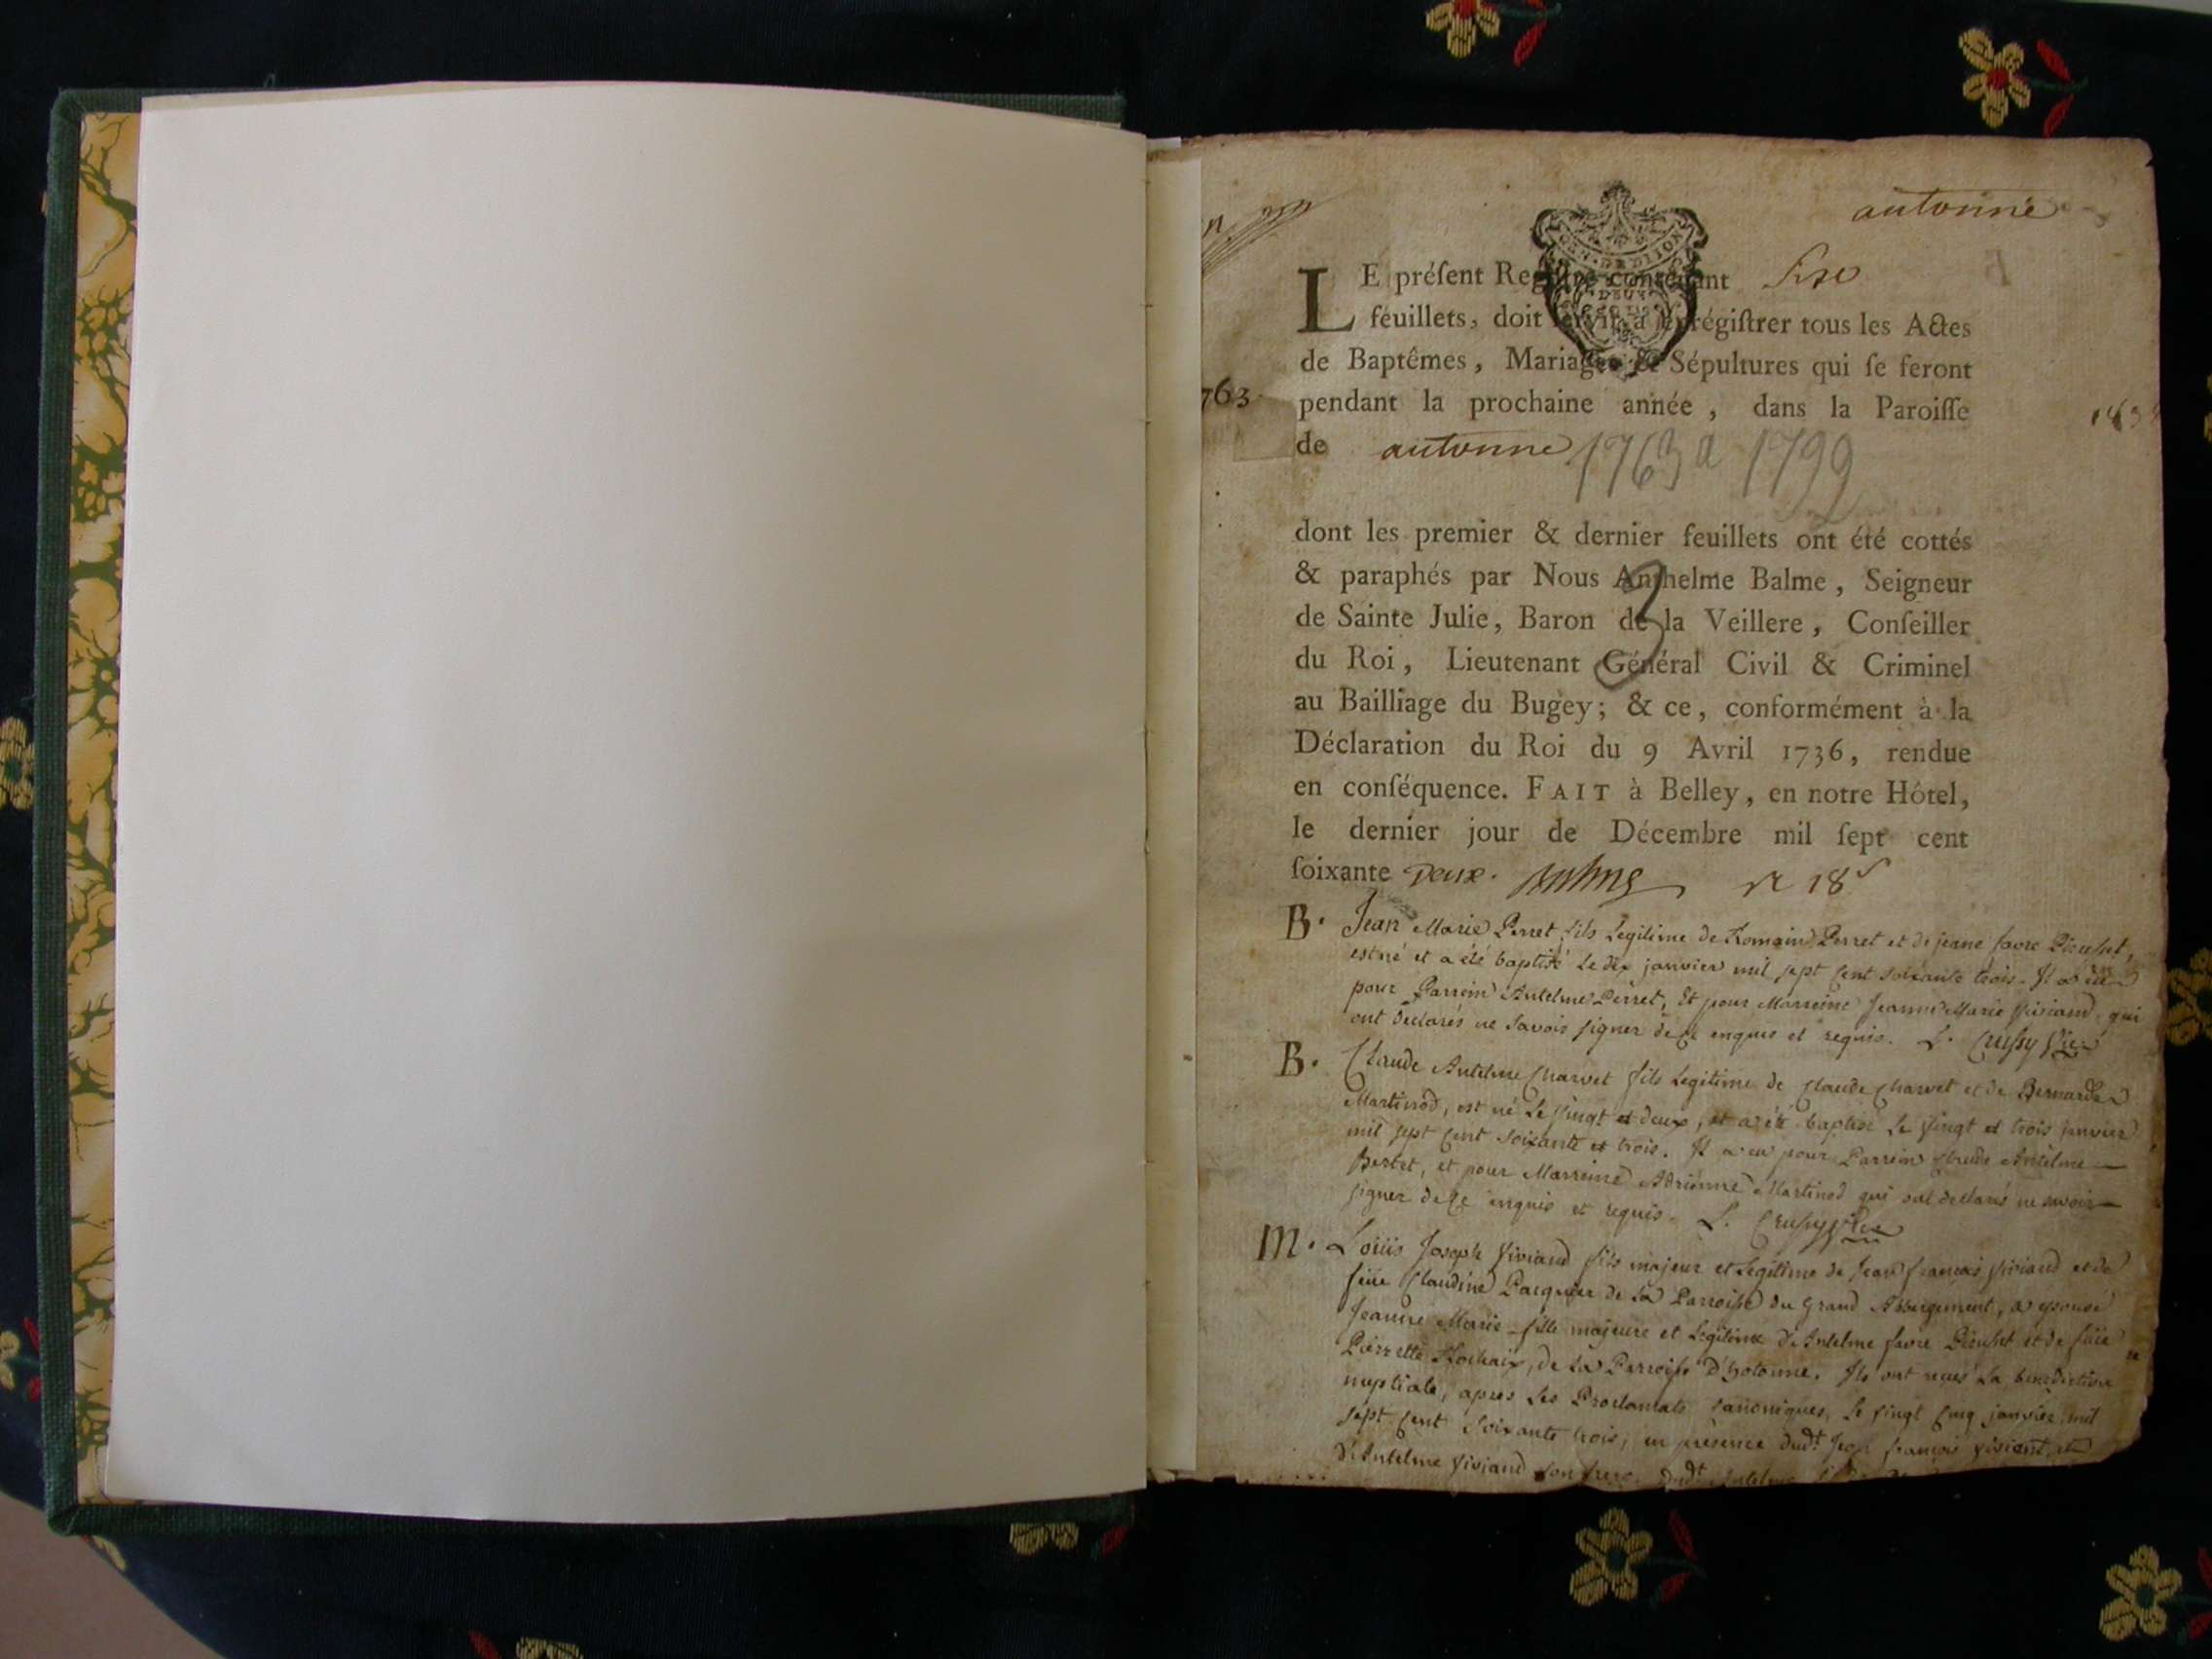 autonne
GEN. DE DIJON
LE préſent Regiſtre contenant six
feuillets, doit ſervir à enrégiſtrer tous les Actes
de Baptêmes, Mariages & Sépultures qui ſe feront
763
pendant la prochaine année, dans la Paroiſſe
de autonne 1763 a 1799
dont les premier & dernier feuillets ont été cottés
& paraphés par Nous Anthelme Balme, Seigneur
de Sainte Julie, Baron de la Veillere, Conſeiller
du Roi, Lieutenant Général Civil & Criminel
au Bailliage du Bugey; & ce, conformément à la
Déclaration du Roi du 9 Avril 1736, rendue
en conſéquence. FAIT à Belley, en notre Hôtel,
le dernier jour de Décembre mil ſept cent
ſoixante Deux. Balme 18
B. Jean Marie Perret fils Legitime de Romain Perret et de jeane favre
est né et a été baptisé Le dix janvier mil sept cent soixante trois. Il a eu
pour Parrein Antelme Perret, Et pour Marreine Jeanne Marie Viviand qui
ont declarés ne savoir signer de ce enquis et requis. L.
B. Claude Antelme Charvet fils Legitime de Claude Charvet et de Bernarde
Martinod, est né Le vingt et deux, et a été baptisé Le vingt et trois janvier
mil sept cent soixante et trois. Il a eu pour Parrein Claude Antelme
et pour Marreine Adrienne Martinod qui ont declarés ne savoir
signer de ce enquis et requis. L.
M. Loüis Joseph Viviand fils majeur et Legitime de Jean françois Viviand et de
feüe Claudine Pacquier de La Parroisse du Grand Abbergement, a epousé
Jeanne Marie fille majeure et Legitime de Antelme favre et de feüe
Pierrette de La Parroisse D'hotonne. Ils ont reçus La benediction
nuptiale, apres Les Proclamats canoniques, Le vingt cinq janvier mil
sept cent soixante trois, en presence dudt. Jean françois Viviand, et
d'Antelme Viviand son frere, dudt. Antelme